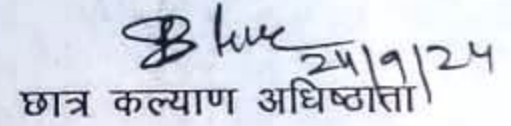 24/9/24
छात्र कल्याण अधिष्ठाता